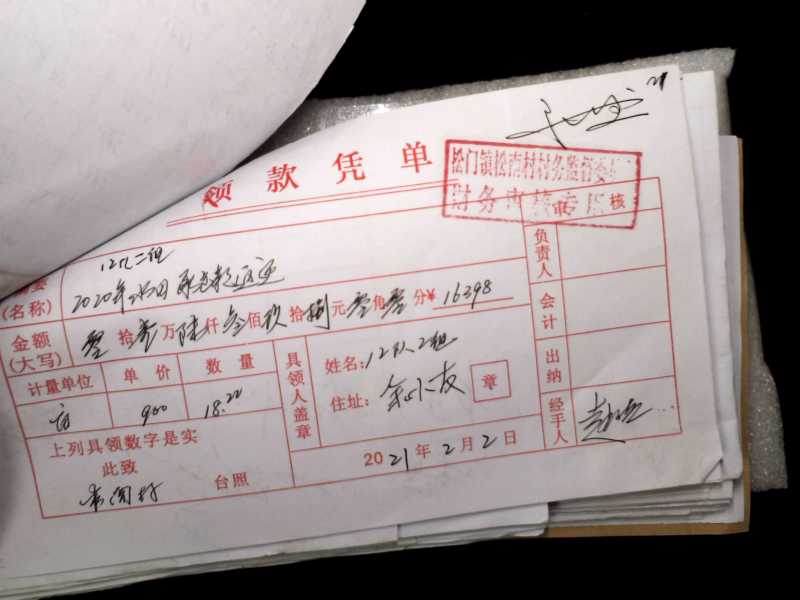 领款凭单
松门镇松南村村务监督委
财务审核专用
核
12队二组
(名称) 2020年水田承包款返还
金额(大写) 零拾壹万陆仟叁佰玖拾捌元零角零分¥16398
计量单位 单价 数量
亩 900 18.22
具领人盖章
姓名:12队2组
住址:
章
上列具领数字是实
此致
台照
2021年2月2日
负责人
会计
出纳
经手人